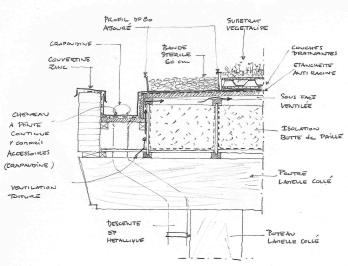 PROFIL DE 80
AJOURÉ
SUBSTRAT
VEGETALISE
CRAPAUDINE
BANDE
STERILE
60 cm
COUVERTINE
ZINC
COUCHES
DRAINANTES
ETANCHEITE
ANTI RACINE
SOUS FACE
VENTILÉE
CHENEAU
A PENTE
CONTINUE
Y COMPRIS
ACCESSOIRES
(CRAPAUDINE)
ISOLATION
BOTTE de PAILLE
VENTILATION
TOITURE
POUTRE
LAMELLE COLLÉ
DESCENTE
EP
METALLIQUE
POTEAU
LAMELLE COLLÉ